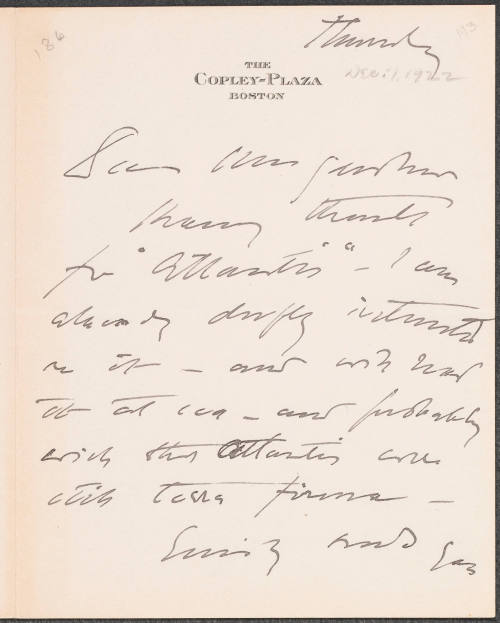 186
113
Thursday
THE
COPLEY-PLAZA
BOSTON
Dec. 1, 1922
Dear Mrs Gardner
Many thanks
for "Atlantis" - I am
already deeply interested
in it - and will read
it at sea - and probably
wish the Atlantis were
still terra firma -
Emily sends